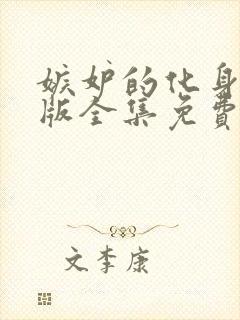 嫉妒的化身
版全集免费
文李康